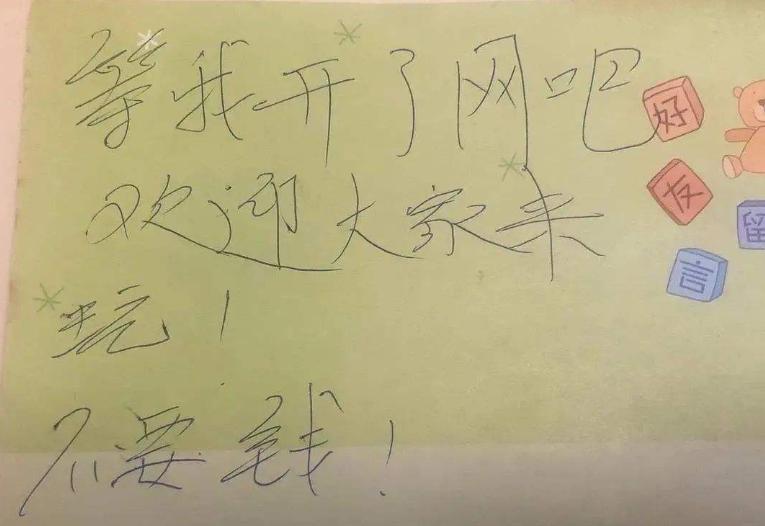 等我开了网吧
欢迎大家来
玩!
不要钱!
好
友
留
言